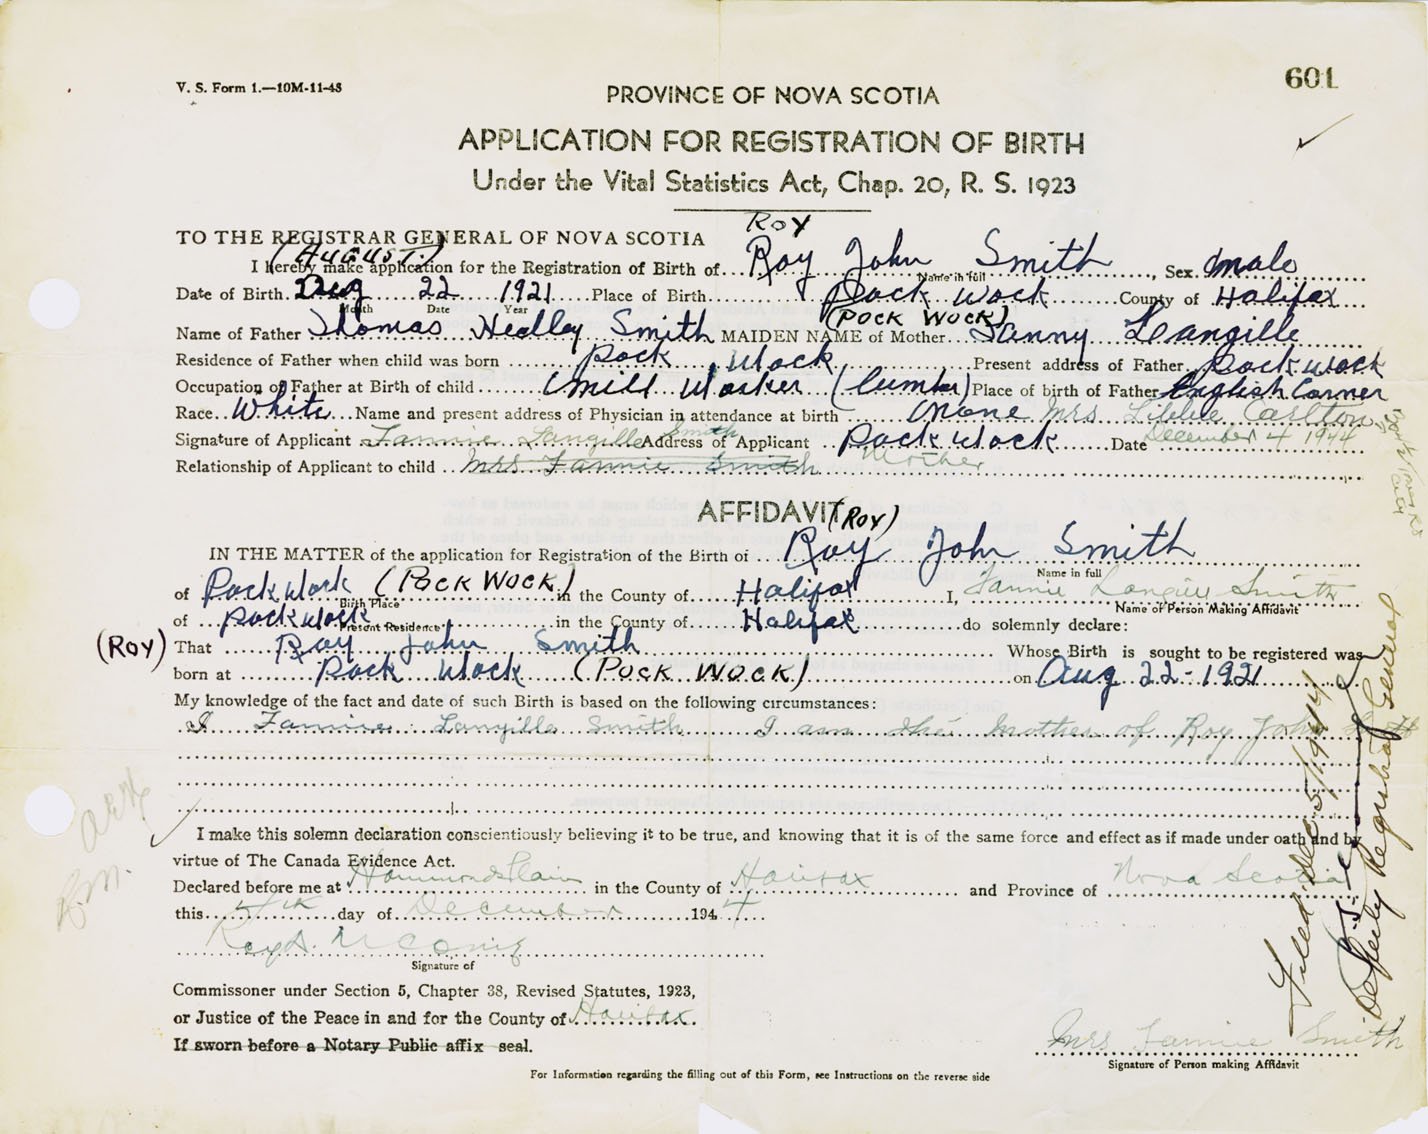 V. S. Form 1.—10M-11-43
601
PROVINCE OF NOVA SCOTIA
APPLICATION FOR REGISTRATION OF BIRTH
Under the Vital Statistics Act, Chap. 20, R. S. 1923
ROY
TO THE REGISTRAR GENERAL OF NOVA SCOTIA
(AUGUST)
I hereby make application for the Registration of Birth of Roy John Smith, Sex male
Name in full
Date of Birth Aug 22 1921 Place of Birth Pock Wock County of Halifax
Month Date Year (POCK WOCK)
Name of Father Thomas Hedley Smith MAIDEN NAME of Mother Fanny Langille
Residence of Father when child was born Pock Wock Present address of Father Pock Wock
Occupation of Father at Birth of child Mill Worker (Lumber) Place of birth of Father English Corner
Race White Name and present address of Physician in attendance at birth none Mrs Libbie Carlton
Signature of Applicant Fannie Langille Smith Address of Applicant Pock Wock Date December 4 1944
Relationship of Applicant to child Mrs Fannie Smith Mother
AFFIDAVIT
(ROY)
IN THE MATTER of the application for Registration of the Birth of Roy John Smith
Name in full
of Pock Wock (POCK WOCK) in the County of Halifax I, Fannie Langille Smith
Birth Place Name of Person Making Affidavit
of Pock Wock in the County of Halifax do solemnly declare:
Present Residence
(ROY) That Roy John Smith Whose Birth is sought to be registered was
born at Pock Wock (POCK WOCK) on Aug 22-1921
My knowledge of the fact and date of such Birth is based on the following circumstances:
I Fannie Langille Smith I am the mother of Roy John Smith
I make this solemn declaration conscientiously believing it to be true, and knowing that it is of the same force and effect as if made under oath and by
virtue of The Canada Evidence Act.
Declared before me at Hammonds Plain in the County of Halifax and Province of Nova Scotia
this 5th day of December 1944
Signature of
Commissoner under Section 5, Chapter 38, Revised Statutes, 1923,
or Justice of the Peace in and for the County of Halifax
If sworn before a Notary Public affix seal.
Mrs Fannie Smith
Signature of Person making Affidavit
For Information regarding the filling out of this Form, see Instructions on the reverse side
Filed Dec 5/1944
Deputy Registrar General